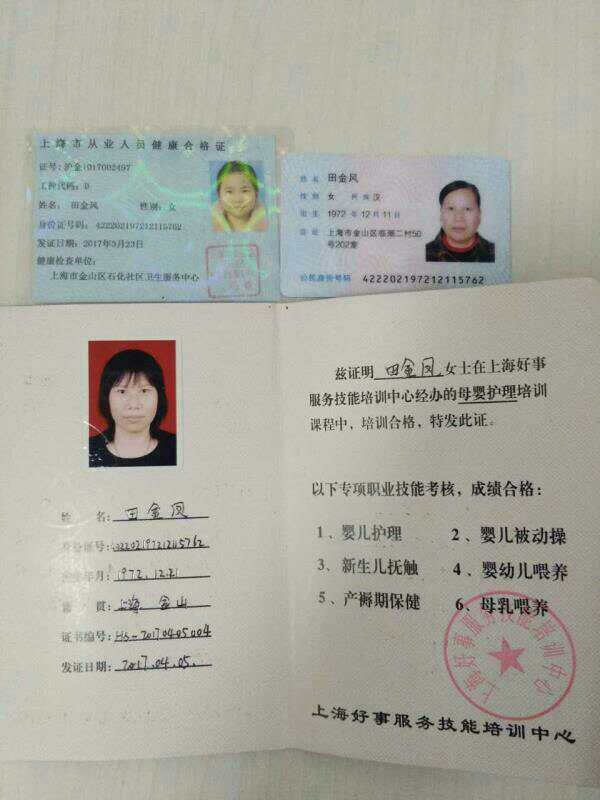 上海市从业人员健康合格证
工种代码：D
姓名：田金风 性别：女
身份证号码：422202197212115762
发证日期：2017年3月23日
健康检查单位：
上海市金山区石化社区卫生服务中心
姓名 田金风
性别 女 民族 汉
出生 1972 年 12 月 11 日
住址 上海市金山区临潮二村50
号202室
公民身份号码 422202197212115762
姓 名：田金风
身份证号：422202197212115762
出生年月：1972.12.
籍 贯：上海 金山
证书编号：
发证日期：2017.04.05.
兹证明 田金风 女士在上海好事
服务技能培训中心经办的母婴护理培训
课程中，培训合格，特发此证。
以下专项职业技能考核，成绩合格：
1、婴儿护理 2、婴儿被动操
3、新生儿抚触 4、婴幼儿喂养
5、产褥期保健 6、母乳喂养
上海好事服务技能培训中心
上海好事服务技能培训中心